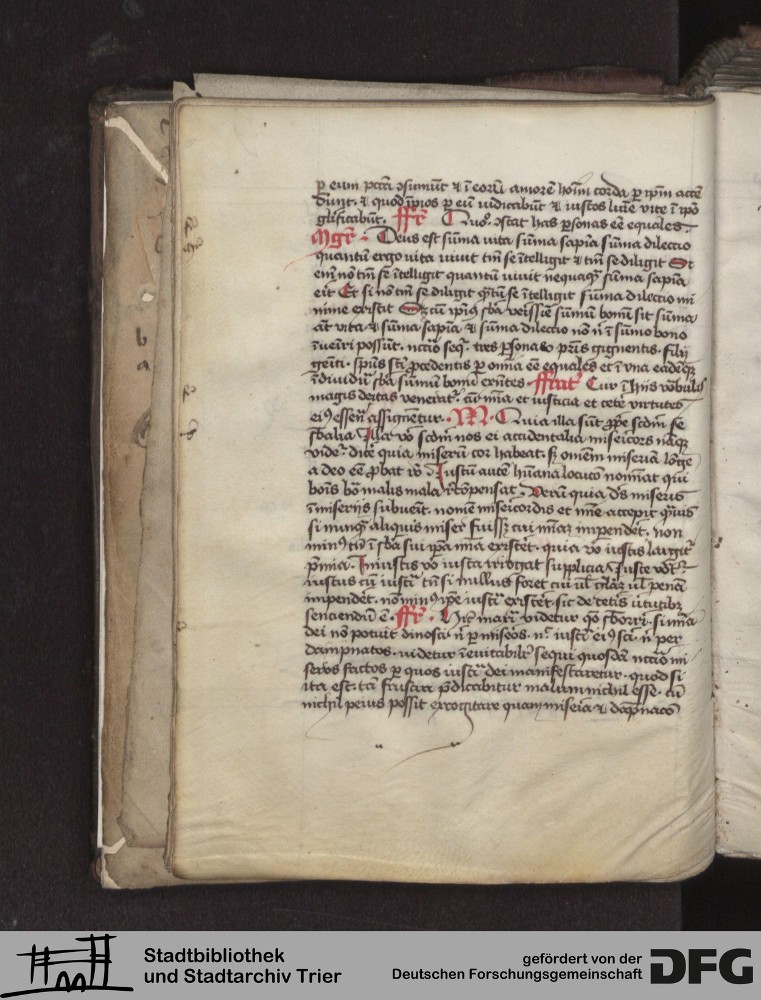 p eum pctā ɔsumūt ⁊ ī eorū amorē hoīm corda p ip̄m accē
dunt. ⁊ quod īpios p eū iudicabūt ⁊ iustos lumē vite ī ip̄o
gl̄ificabūt. ffr̄ Quō ɔstat has psonas eē equales
Mgr̄ Deus est sūma vita sūma sapīa sūma dilectio
quantū ergo vita viuit tm̄ se ītelligit ⁊ tm̄ se diligit Si
eni nō tm̄ se ītelligit quantū viuit nequaq̄ sūma sapīa
erit Et si nō tm̄ se diligit q̄tū se ītelligit sūma dilectio mi
nime existit sūmū bonū sit sūma
aūt vita ⁊ sūma sapīa ⁊ sūma dilectio nō n̄ ī sūmo bono
īueīri possūt. ncc̄io seq̄ tres psonas pris gignentis. filij
geīti. spūs sc̄i pcedentis p omīa eē equales et ī vna eadēq̄
īdiuidū sūmū bonū ffrat̄ Cur ī hijs vobulis
magis deitas venerat̄. cū mīa et iusticia et cetē virtutes
ei⁹ essen̄ assignētur. M Quia illa sūt ppe scdm se
sb̄alia Illa vō scdm nos ei accidentalia misericors naq̄
vidē. dicē quia miserū cor habeat. sꝫ omēm miseriā lōge
a deo eē pbat rō Iustū autē hūana locutō nomīat qui
boīs bō malis mala rōpensat. Verū quia d̄s miserīs
ī miserijs subueīt. nomē misericordis et mīe accepit q̄uis
si nunq̄ aliquis miser fuissꝫ cui mīaꝫ impendēt. non
min⁹ tn̄ ī sb̄a sui ipa mīa existēt. quia vō iustis largit̄
p̄mia. Iniustis vō iusta irrogat supplicia Iuste
iustus cū iustī tn̄ si nullus foret cui vl̄ vl̄ penā
impendēt. nō min⁹ ipe iustī existēt sic de cetīs v̄tutibꝫ
senciendū ē. ffr̄ videtur qō si mīa
dei nō potuit dinosci n̄ p miseōs. nc̄ iustī ei⁹ sci n̄ per
dampnatos. videtur īeuitabilr̄ sequi quosdā ncc̄io mi
seros factos p quos iustī dei manifestaretur. quod si
ita est. tā frustra p̄dicabitur malum nichil esse. cū
nichil peius possit excogitare quam misēia ⁊ dāpnacō
Stadtbibliothek
und Stadtarchiv Trier
gefördert von der
Deutschen Forschungsgemeinschaft
DFG